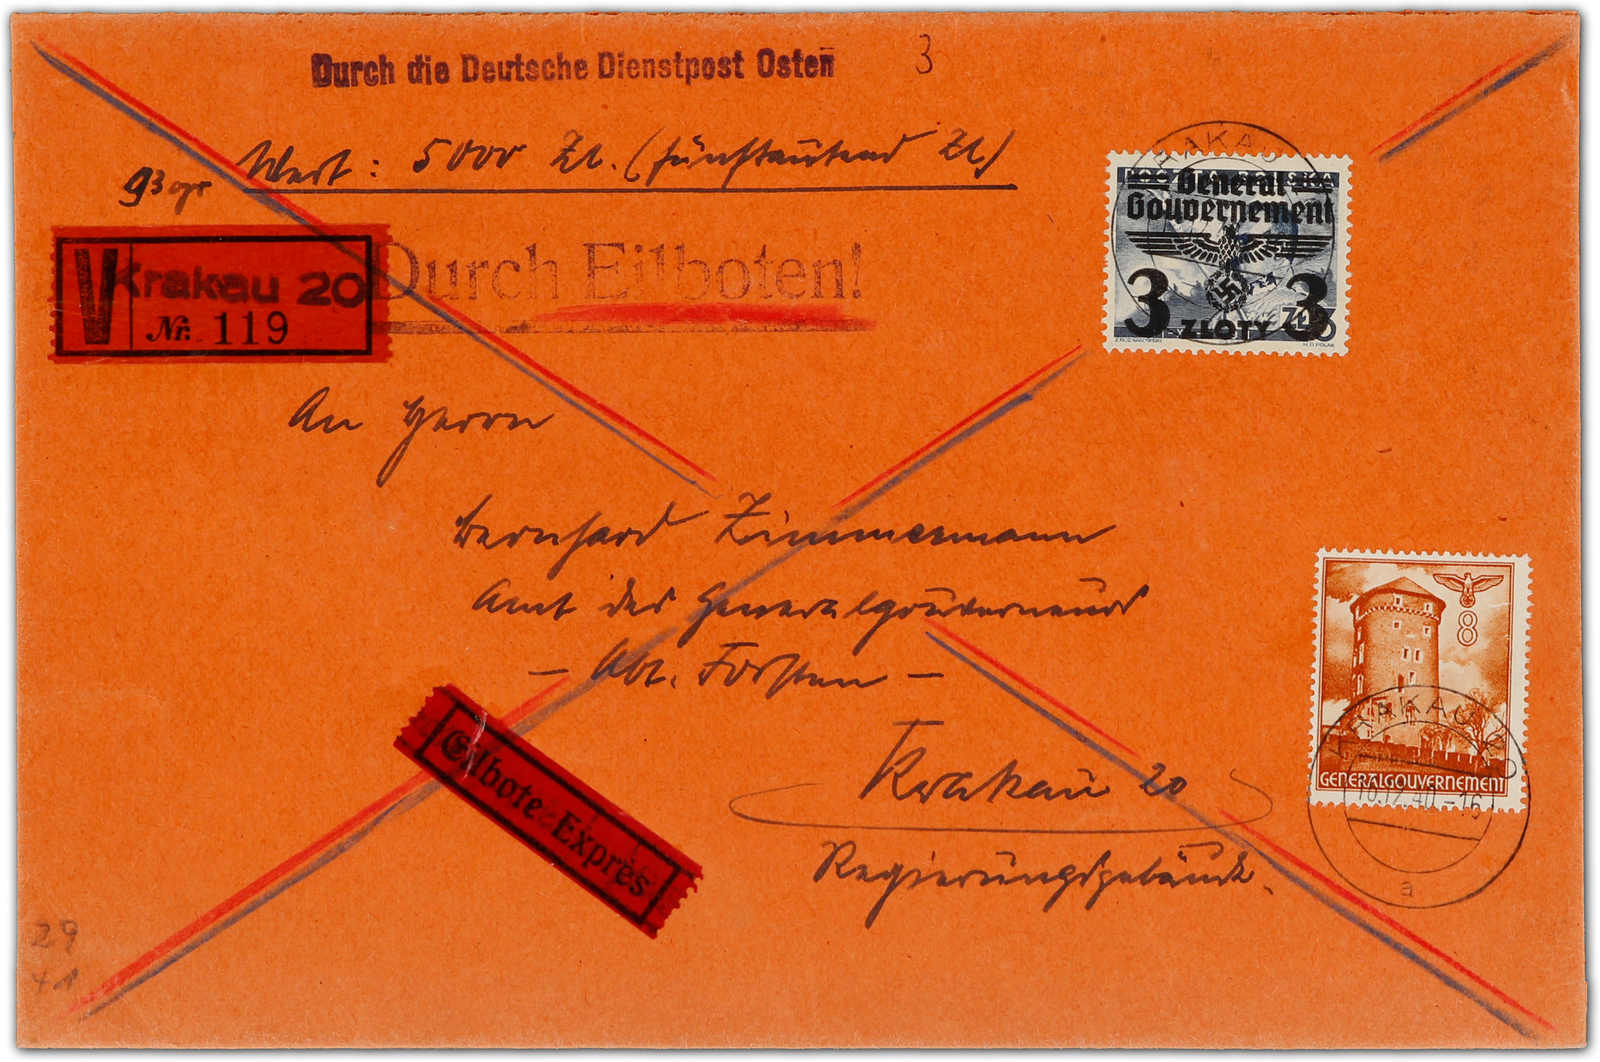 Durch die Deutsche Dienstpost Osten
3
Wert: 5000 Zl. (fünftausend Zl.)
93 gr
V Krakau 20
Nr. 119
Durch Eilboten!
General
Gouvernement
3 3
ZŁOTY
An Herrn
Bernhard Zimmermann
Amt des Generalgouverneurs
- Abt. Forsten -
Krakau 20
Regierungsgebäude.
Eilbote-Exprès
8
GENERALGOUVERNEMENT
KRAKAU 20
10.12.40.-16
a
KRAKAU
29
41